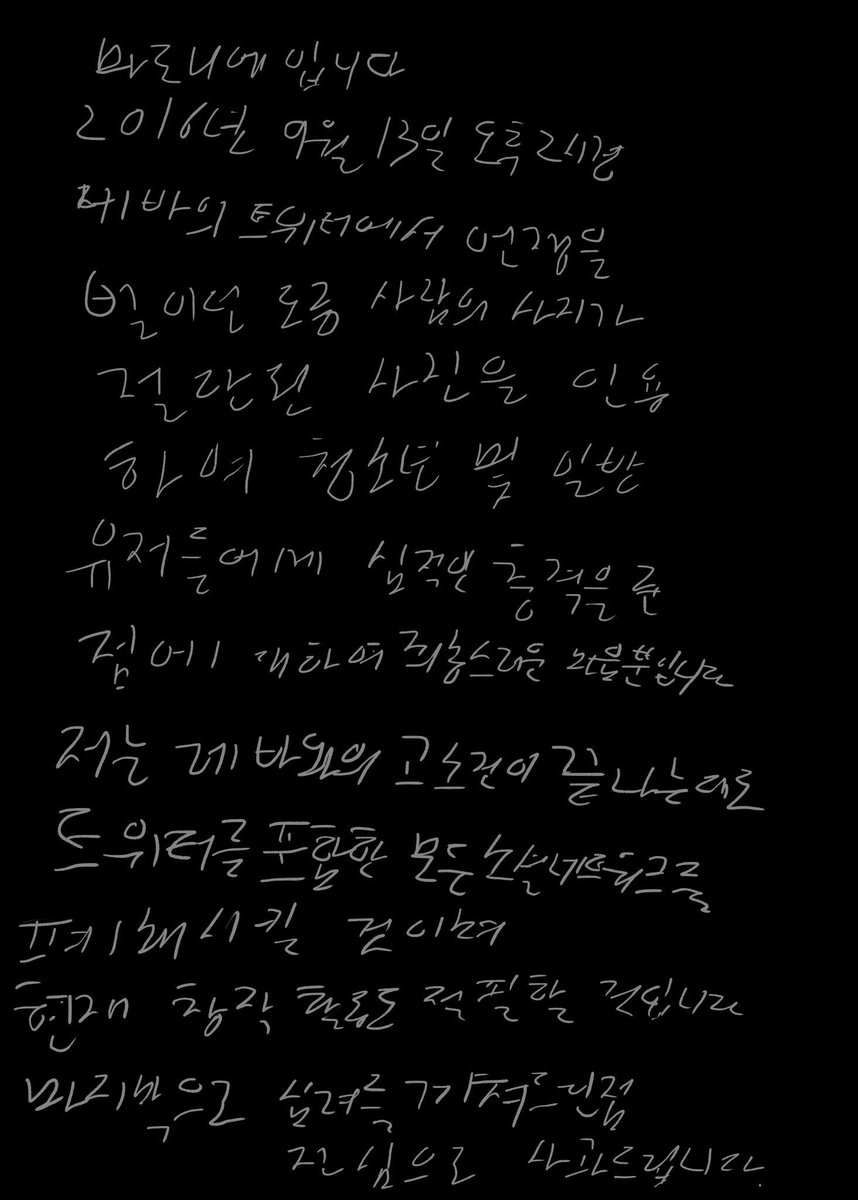 마로니에 입니다
2016년 9월 13일 오후 2시경
레바의 트위터에서 언쟁을
벌이던 도중 사람의 사지가
절단된 사진을 인용
하여 청소년 및 일반
유저들에게 심적인 충격을 준
점에 대하여 죄송스러운 마음뿐입니다
저는 레바와의 고소건이 끝나는대로
트위터를 포함한 모든 소셜네트워크를
폐쇄시킬 것이며
현재 창작 활동도 절필할 것입니다
마지막으로 심려를 끼쳐드린점
진심으로 사과드립니다.